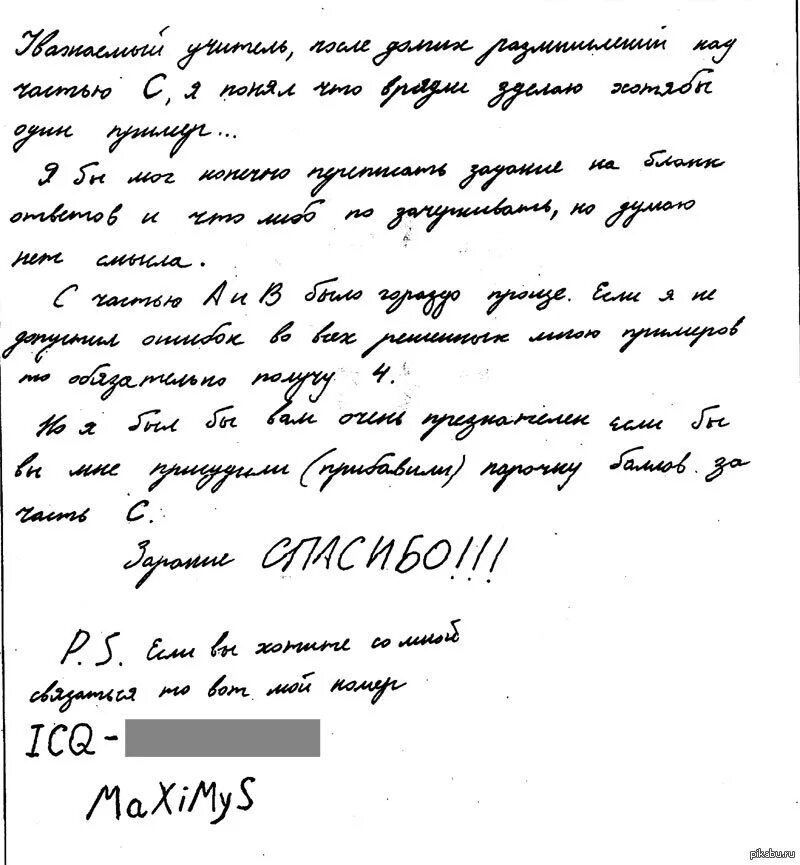 Уважаемый учитель, после долгих размышлений над
частью С, я понял что врядли зделаю хотябы
один пример...
Я бы мог конечно переписать задание на бланк
ответов и что либо по зачеркивать, но думаю
нет смысла.
С частью А и В было гораздо проще. Если я не
допустил ошибок во всех решенных мною примеров
то обязательно получу 4.
Но я был бы вам очень презнателен если бы
вы мне присудили (прибавили) парочку баллов за
часть С.
Зарание СПАСИБО!!!
P.S. Если вы хотите со мной
связаться то вот мой номер
ICQ-
MaXiMyS
pikabu.ru